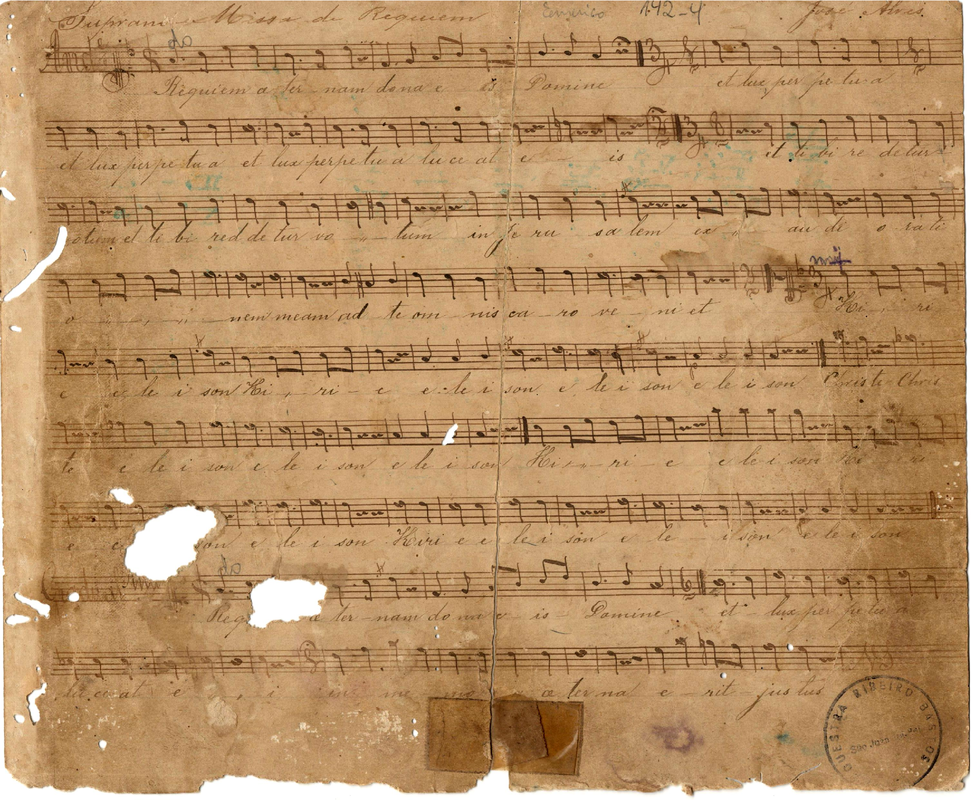 Suprano Missa de Requiem 142-4 José Alves
do
Requiem a ter nam do na e is Domine et lux per pe tu a
et lux per pe tu a et lux per pe tu a lu ce at e is et ti bi re de tur
votum et ti bi red de tur vo tum in Je ru sa lem ex au de o ra ti
o nem meam ad te om nis ca ro ve ni et Ki ri
e e le i son Ki ri e e le i son e le i son e le i son Christe Chris
te e le i son e le i son e le i son Ki ri e e le i son Ki ri
e e son e le i son Kiri e e le i son e le i son e le i son
do
Req a ter nam do na e is Domine et lux per pe tu a
lu ceat e i me mo a ter na e rit justus
ORQUESTRA RIBEIRO BASTOS